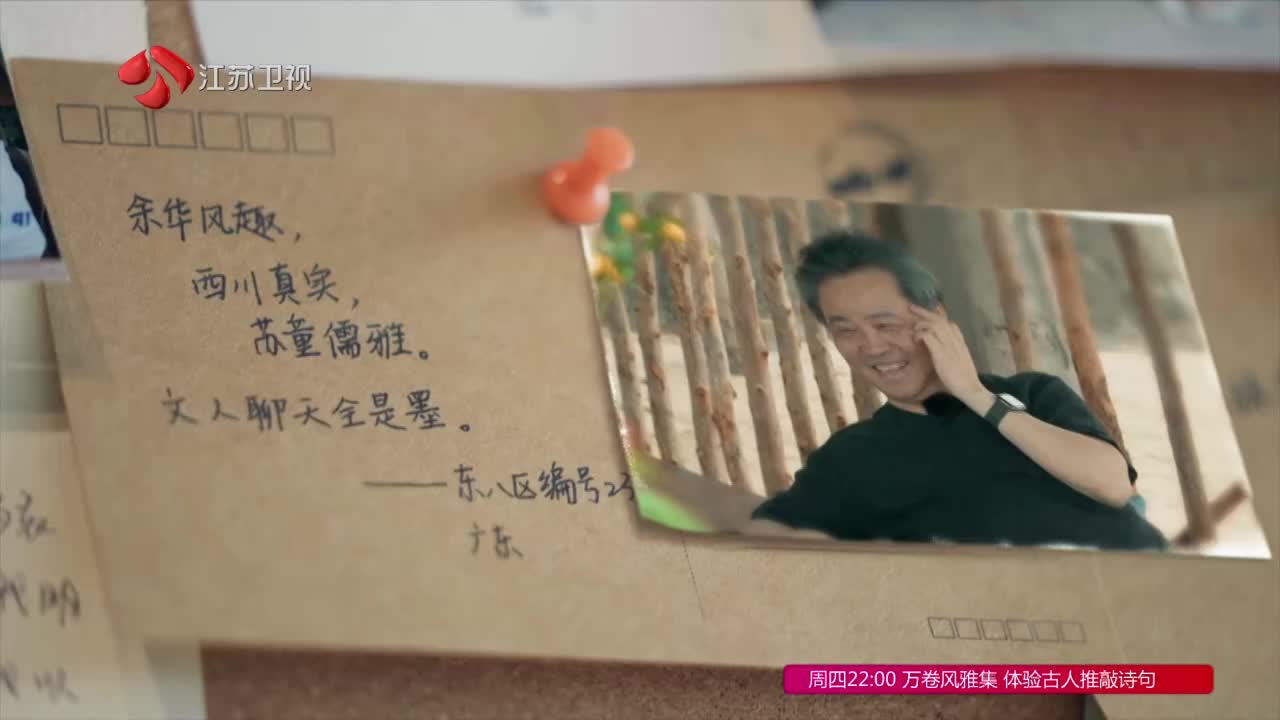 江苏卫视
余华风趣，
西川真实，
苏童儒雅。
文人聊天全是墨。
——东八区编号23
广东
周四22:00 万卷风雅集 体验古人推敲诗句